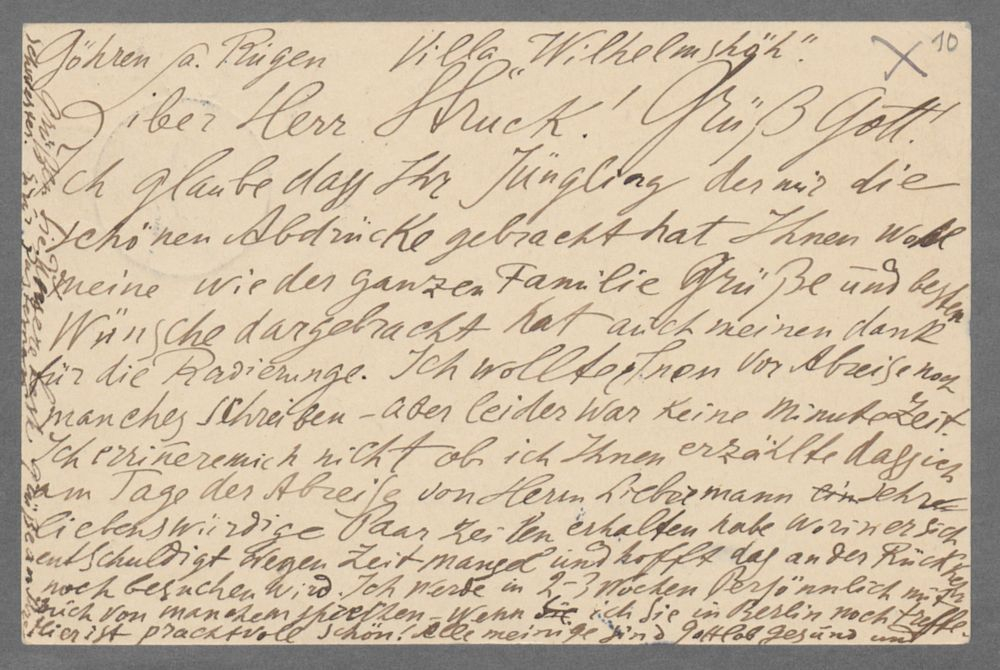 10
Göhren a. Rügen Villa „Wilhelmshöh".
Liber Herr Struck! Grüß Gott!
Ich glaube dass Ihr Jüngling der mir die
schönen Abdrücke gebracht hat Ihnen wohl
meine wie der ganzen Familie Grüße und besten
Wünsche dargebracht hat auch meinen dank
für die Radierunge. Ich wollte Ihnen vor Abreise noch
manches schreiben – aber leider war keine Minute Zeit.
Ich errineremich nicht ob ich Ihnen erzählte dass ich
am Tage der Abreise von Herrn Liebermann ein sehr
liebenswürdige Paar Zeilen erhalten habe worin er sich
entschuldigt wegen Zeit mangel und hofft das an der Rückkehr
noch besuchen wird. Ich werde in 2–3 Wochen Persönnlich mit
von manchem sprechen – wenn Sie ich Sie in Berlin noch treffe.
Hier ist prachtvole schön. Alle meinige sind gottlob gesund und
Grüssen herzlichst
schwester